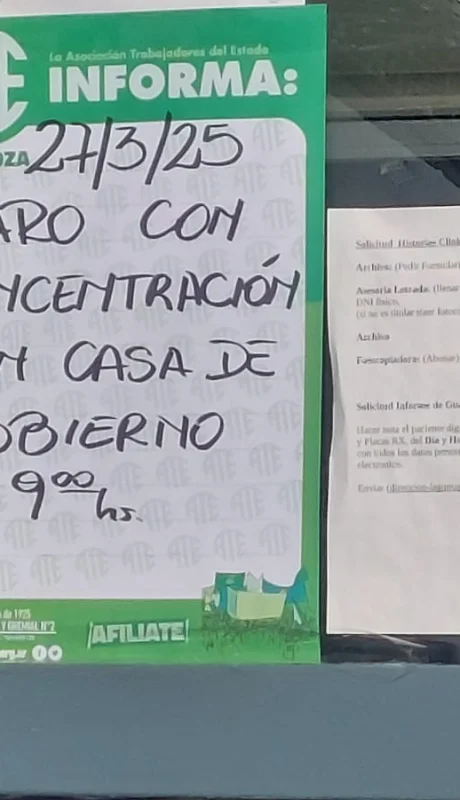 La Asociación Trabajadores del Estado
INFORMA:
OZA 27/3/25
ARO CON
NCENTRACIÓN
N CASA DE
OBIERNO
9⁰⁰ hs.
de 1925
Y GREMIAL Nº2
AFILIATE
Solicitud Historias Clíni
Archivo: (Pedir Formulari
Asesoría Letrada: (llenar
DNI físico,
Archivo
Fotocopiadora: (Abonar)
Solicitud Informe de Gu
Hacer nota el paciente dig
y Placas RX, del Día y Ho
con todos los datos person
electrónico.
Enviar